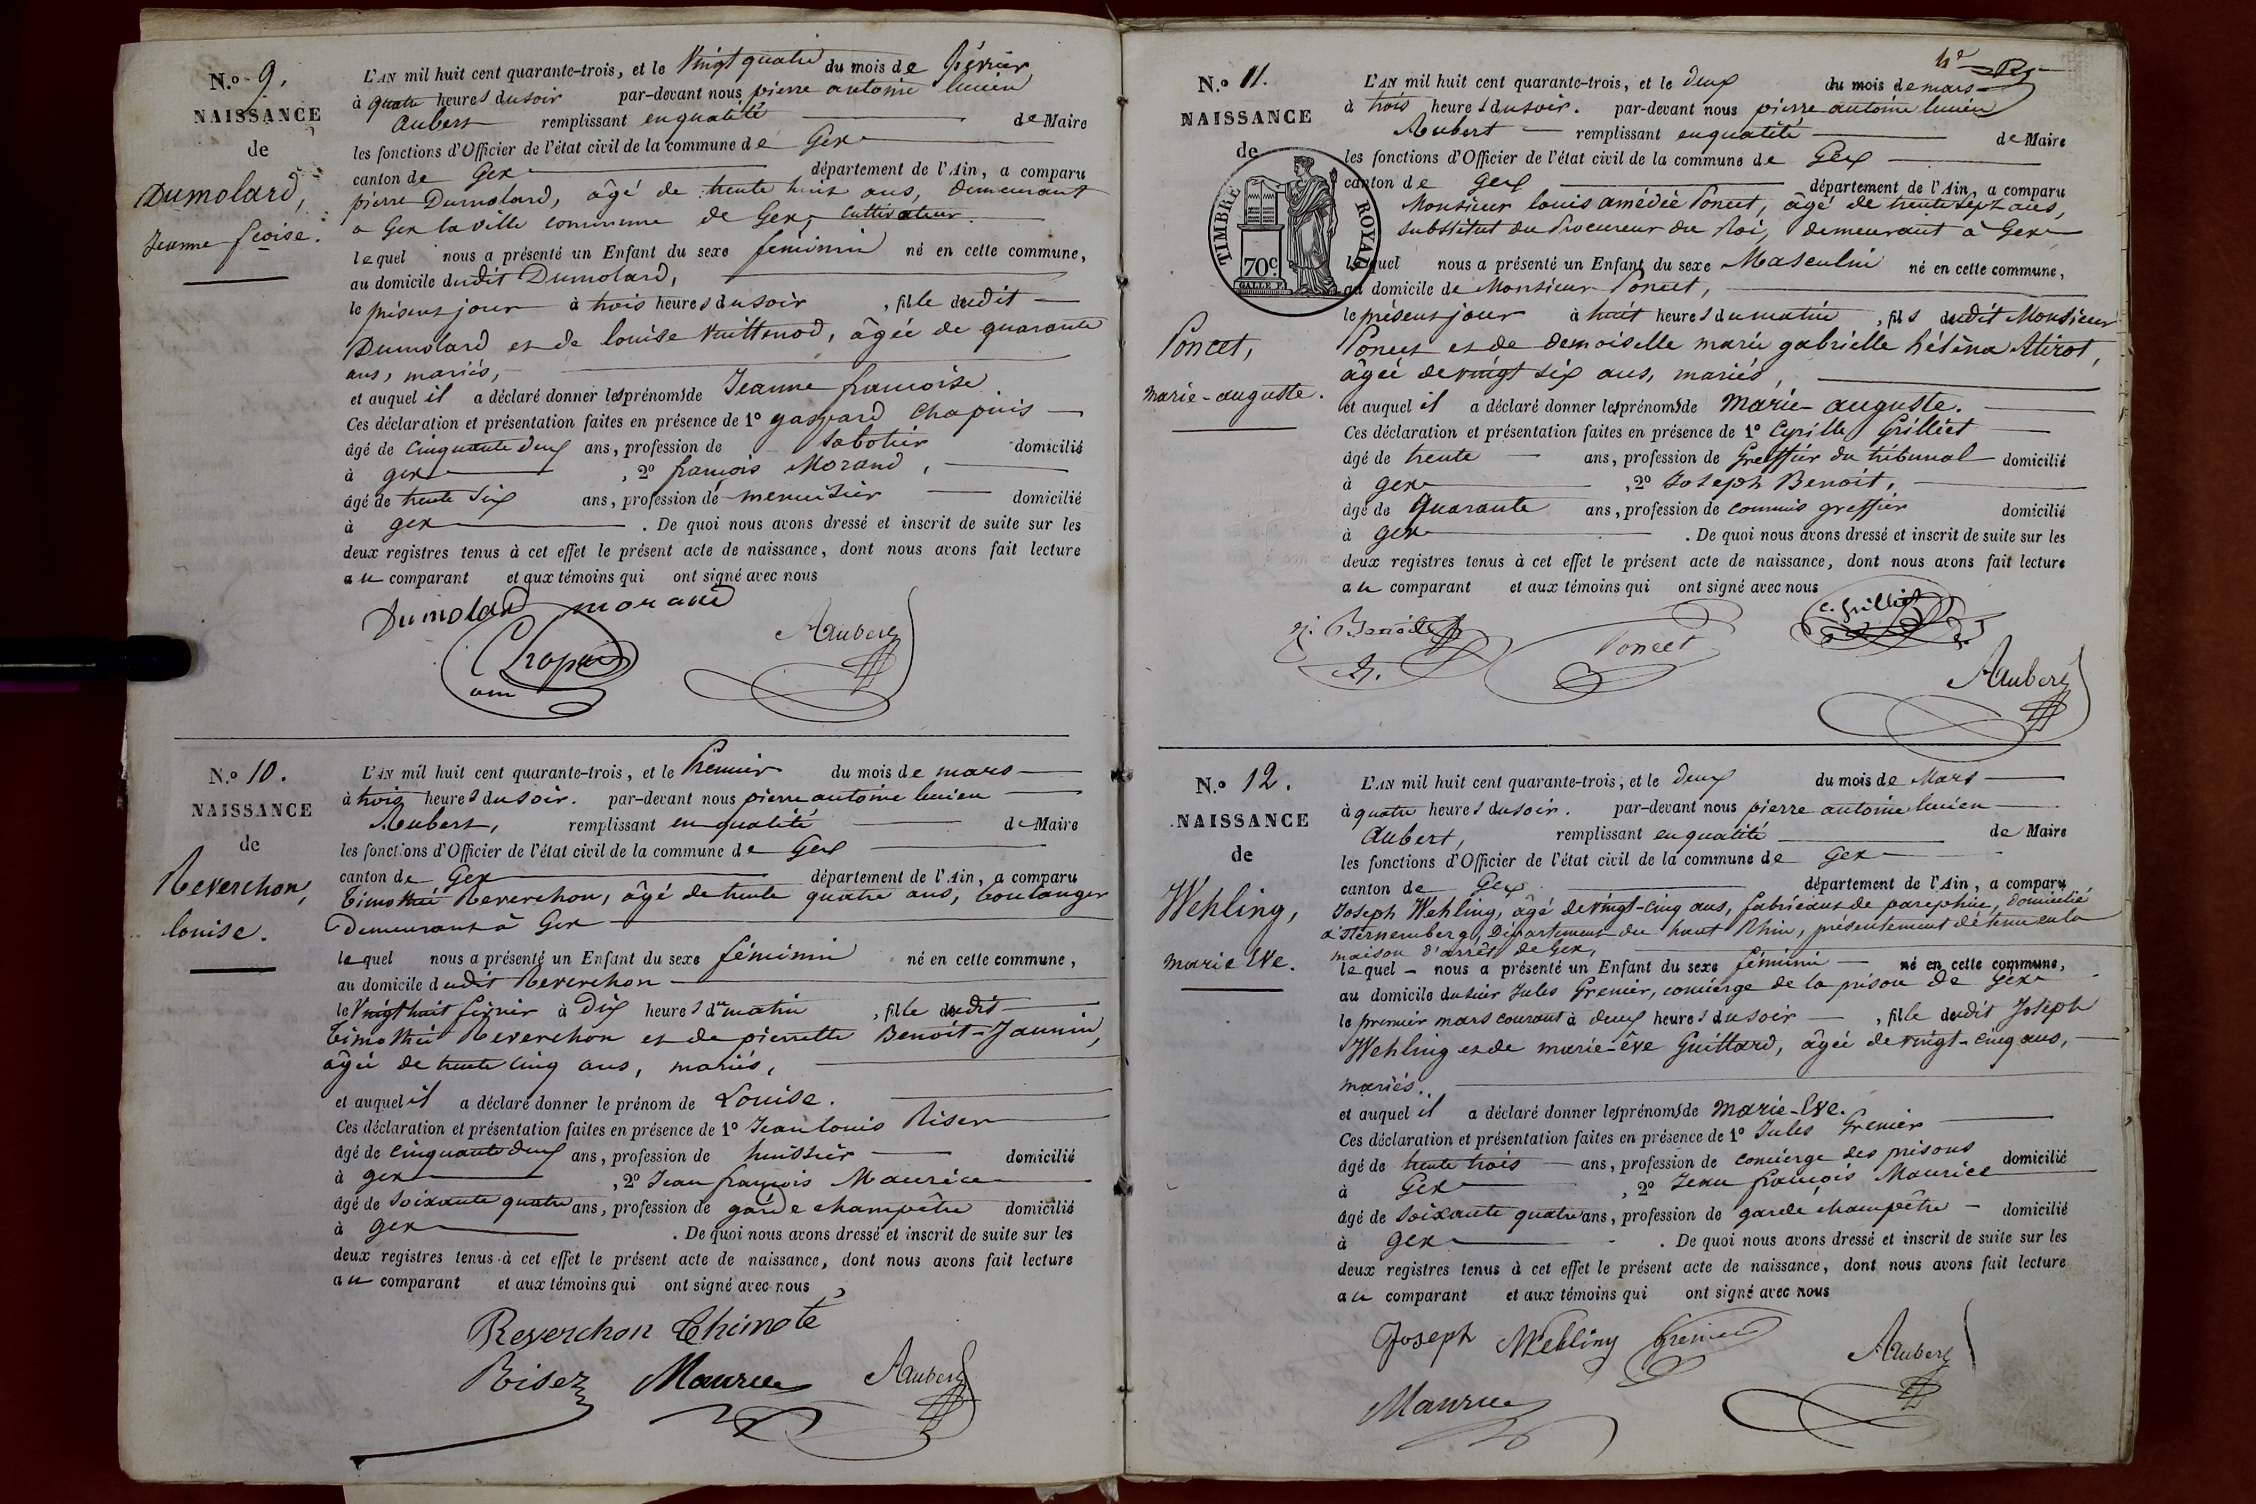 N.o 9.
NAISSANCE
de
Dumolard,
Jeanne fcoise.
L'AN mil huit cent quarante-trois, et le Vingt quatre du mois de février
à quatre heures du soir par-devant nous pierre antoine lucien
Aubert remplissant en qualité de Maire
les fonctions d'Officier de l'état civil de la commune de Gex
canton de Gex département de l'Ain, a comparu
pierre Dumolard, âgé de trente huit ans, demeurant
a Gex la ville commune de Gex, cultivateur.
lequel nous a présenté un Enfant du sexe féminin né en cette commune,
au domicile dudit Dumolard,
le présent jour à trois heures du soir, fille dudit
Dumolard et de louise Vuittenod, âgée de quarante
ans, mariés,
et auquel il a déclaré donner les prénoms de Jeanne francoise
Ces déclaration et présentation faites en présence de 1° gaspard Chapuis
âgé de cinquante deux ans, profession de Sabotier domicilié
à gex, 2° francois Morand,
âgé de trente six ans, profession de menuisier domicilié
à gex. De quoi nous avons dressé et inscrit de suite sur les
deux registres tenus à cet effet le présent acte de naissance, dont nous avons fait lecture
au comparant et aux témoins qui ont signé avec nous
Dumolard morand
Chapuis Aubert
N.o 10.
NAISSANCE
de
Reverchon,
louise.
L'AN mil huit cent quarante-trois, et le Premier du mois de mars
à trois heures du soir. par-devant nous pierre antoine lucien
Aubert, remplissant en qualité de Maire
les fonctions d'Officier de l'état civil de la commune de Gex
canton de Gex département de l'Ain, a comparu
Timothée Reverchon, âgé de trente quatre ans, boulanger
Demeurant à Gex
lequel nous a présenté un Enfant du sexe féminin né en cette commune,
au domicile dudit Reverchon
le Vingt huit février à Dix heures du matin, fille dudit
Timothée Reverchon et de pierrette Benoit-Jannin,
âgée de trente cinq ans, mariés,
et auquel il a déclaré donner le prénom de Louise.
Ces déclaration et présentation faites en présence de 1° Jean louis Riser
âgé de cinquante deux ans, profession de huissier domicilié
à gex, 2° Jean françois Maurice
âgé de Soixante quatre ans, profession de garde champêtre domicilié
à gex. De quoi nous avons dressé et inscrit de suite sur les
deux registres tenus à cet effet le présent acte de naissance, dont nous avons fait lecture
au comparant et aux témoins qui ont signé avec nous
Reverchon Thimoté
Riser Maurice Aubert
N.o 11.
NAISSANCE
de
TIMBRE ROYAL
70c.
Poncet,
marie-auguste.
L'AN mil huit cent quarante-trois, et le deux du mois de mars
à trois heures du soir. par-devant nous pierre antoine lucien
Aubert remplissant en qualité de Maire
les fonctions d'Officier de l'état civil de la commune de Gex
canton de Gex département de l'Ain, a comparu
Monsieur louis amédée Poncet, âgé de trente sept ans,
substitut du Procureur du Roi, demeurant à Gex
lequel nous a présenté un Enfant du sexe Masculin né en cette commune,
au domicile de Monsieur Poncet,
le présent jour à huit heures du matin, fils dudit Monsieur
Poncet et de demoiselle marie gabrielle héléna Atirot,
âgée de vingt six ans, mariés,
et auquel il a déclaré donner les prénoms de Marie-auguste.
Ces déclaration et présentation faites en présence de 1° Cyrille Grilliet
âgé de trente ans, profession de Greffier du tribunal domicilié
à gex, 2° Joseph Benoit,
âgé de Quarante ans, profession de commis greffier domicilié
à gex. De quoi nous avons dressé et inscrit de suite sur les
deux registres tenus à cet effet le présent acte de naissance, dont nous avons fait lecture
au comparant et aux témoins qui ont signé avec nous
j. Benoit Poncet C. Grilliet
Aubert
N.o 12.
NAISSANCE
de
Wehling,
marie Eve.
L'AN mil huit cent quarante-trois, et le deux du mois de Mars
à quatre heures du soir. par-devant nous pierre antoine lucien
Aubert, remplissant en qualité de Maire
les fonctions d'Officier de l'état civil de la commune de Gex
canton de Gex département de l'Ain, a comparu
Joseph Wehling, âgé de vingt-cinq ans, fabricant de parephie, domicilié
à Sternemberg, Département du haut Rhin, présentement détenu en la
maison d'arrêt de Gex,
lequel nous a présenté un Enfant du sexe féminin né en cette commune,
au domicile du sieur Jules Grenier, concierge de la prison de Gex
le premier mars courant à deux heures du soir, fille dudit Joseph
Wehling et de marie-ève Guittard, âgée de vingt-cinq ans,
mariés.
et auquel il a déclaré donner les prénoms de Marie-Eve.
Ces déclaration et présentation faites en présence de 1° Jules Grenier
âgé de trente trois ans, profession de concierge des prisons domicilié
à Gex, 2° Jean françois Maurice
âgé de Soixante quatre ans, profession de garde champêtre domicilié
à Gex. De quoi nous avons dressé et inscrit de suite sur les
deux registres tenus à cet effet le présent acte de naissance, dont nous avons fait lecture
au comparant et aux témoins qui ont signé avec nous
Joseph Wehling Grenier Aubert
Maurice